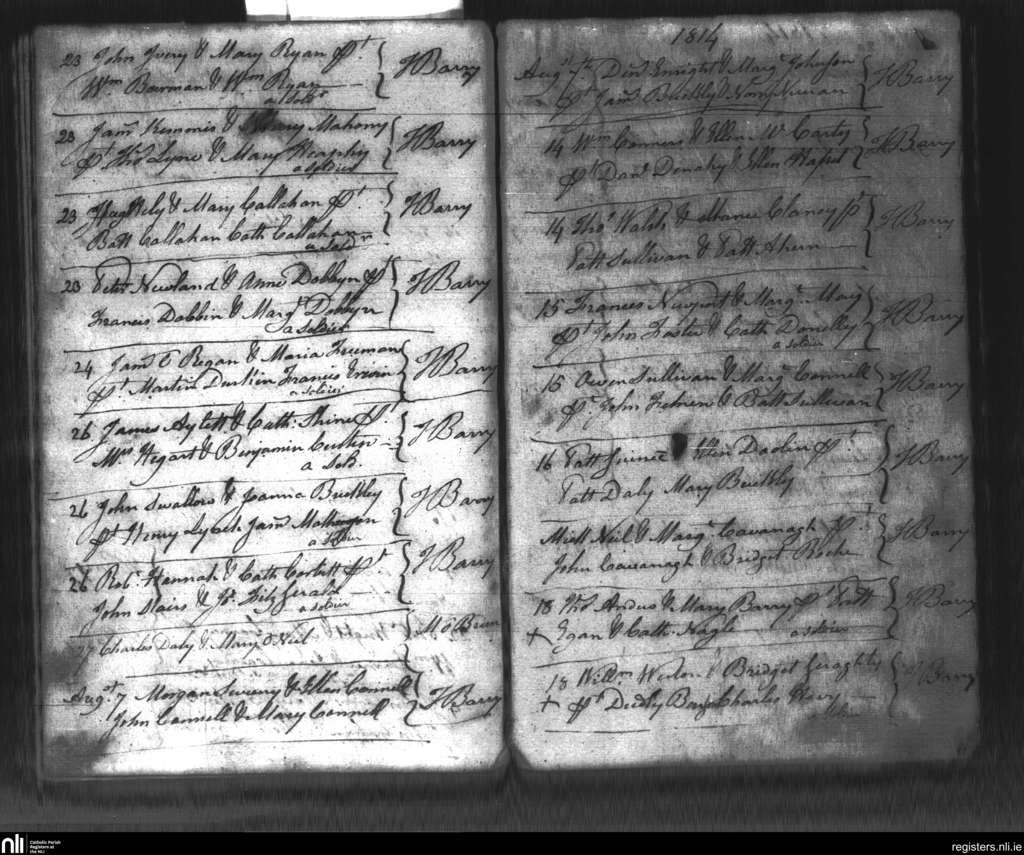 23 John Ivery & Mary Ryan Pt.
Wm Bowman & Wm Ryan
a Soldr
H Barry
23 Jams & Mary Mahony
Pt. Thos Lyne & Mary Murphy
a Soldier
H Barry
23 Hugh Kely & Mary Callahan Pt.
Batt Callahan Cath: Callahan
a Soldr
H Barry
23 Peter Newland & Anne Dobbyn Pt
Francis Dobbin & Margt Dobbyn
a Soldier
H Barry
24 Jams O Regan & Maria Freeman
Pt. Martin Durkin Francis Erwin
a Soldier
H Barry
26 James Aylett & Cath: Shine Pt.
Mrs Hegart & Benjamin Custin
a Sol.
H Barry
26 John Swallow & Joanna Buckley
Pt Henry Jams
a Soldier
H Barry
26 Robt. Hannah & Cath Corbett Pt.
John Stairs & Js. Fitzgerald
a Soldier
H Barry
27 Charles Daly & Mary O Neil
M O Brien
Augst 7 Morgan Sweeny & Ellen Connell
John Connell & Mary Connell
H Barry
1814
Augst 7th Dens Enright & Margt Johnson
Pt Jams Buckley & Nory
H Barry
14 Wm Connors & Ellen Mc Carty
Pt Danl Donahy & Ellen
H Barry
14 Thos Walsh & Clancy Pt
Patt Sullivan & Patt Ahern
H Barry
15 Francis Newport & Margt May
Pt John Foster & Cath Donnelly
a Soldier
H Barry
15 Owen Sullivan & Margt Connell
Pt John & Batt Sullivan
H Barry
16 Patt & Ellen Pt.
Patt Daly Mary Buckley
H Barry
Michl Neil & Margt Cavanagh Pt
John Cavanagh & Bridget Roche
H Barry
18 Thos Andus & Mary Barry Pt Patt
+ Egan & Cath: Nagle a Soldier
H Barry
18 Willm & Bridget Geraghty
+ Pt Charles
H Barry
nli
Catholic Parish
Registers at
the NLI
registers.nli.ie